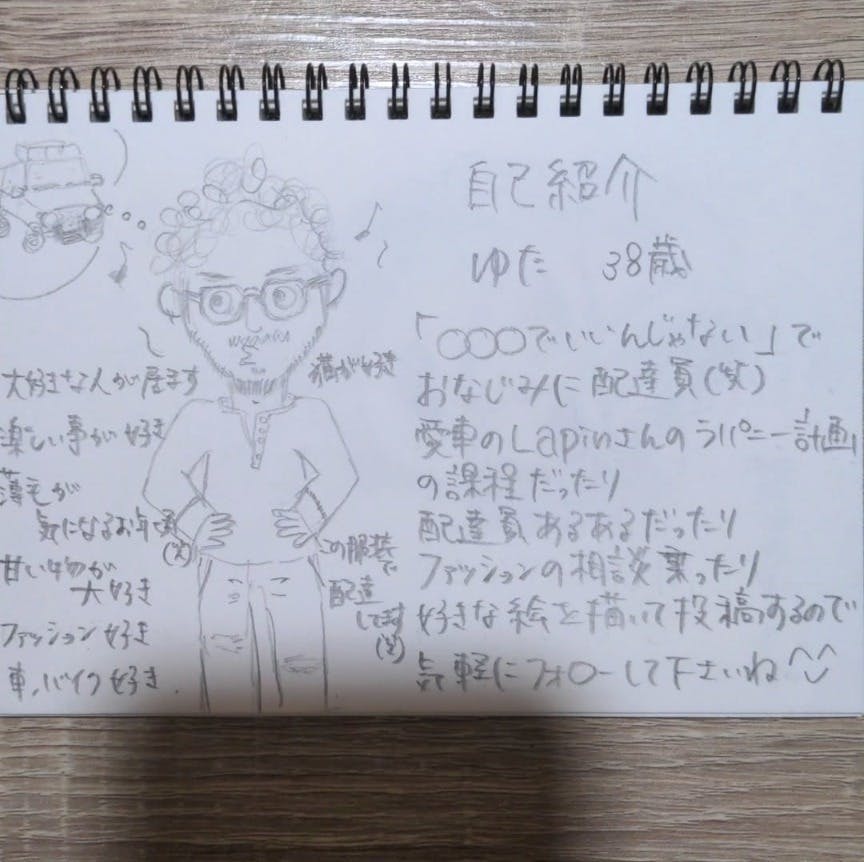 自己紹介
ゆた 38歳
「○○○でいいんじゃない」で
おなじみに配達員(笑)
愛車のLapinさんのラパニー計画
の課程だったり
配達員あるあるだったり
ファッションの相談乗ったり
好きな絵を描いて投稿するので
気軽にフォローして下さいね^^
大好きな人が居ます
楽しい事が好き
薄毛が
気になるお年頃
(笑)
甘い物が
大好き
ファッション好き
車、バイク好き.
猫が好き
この服装で
配達
してます
(笑)